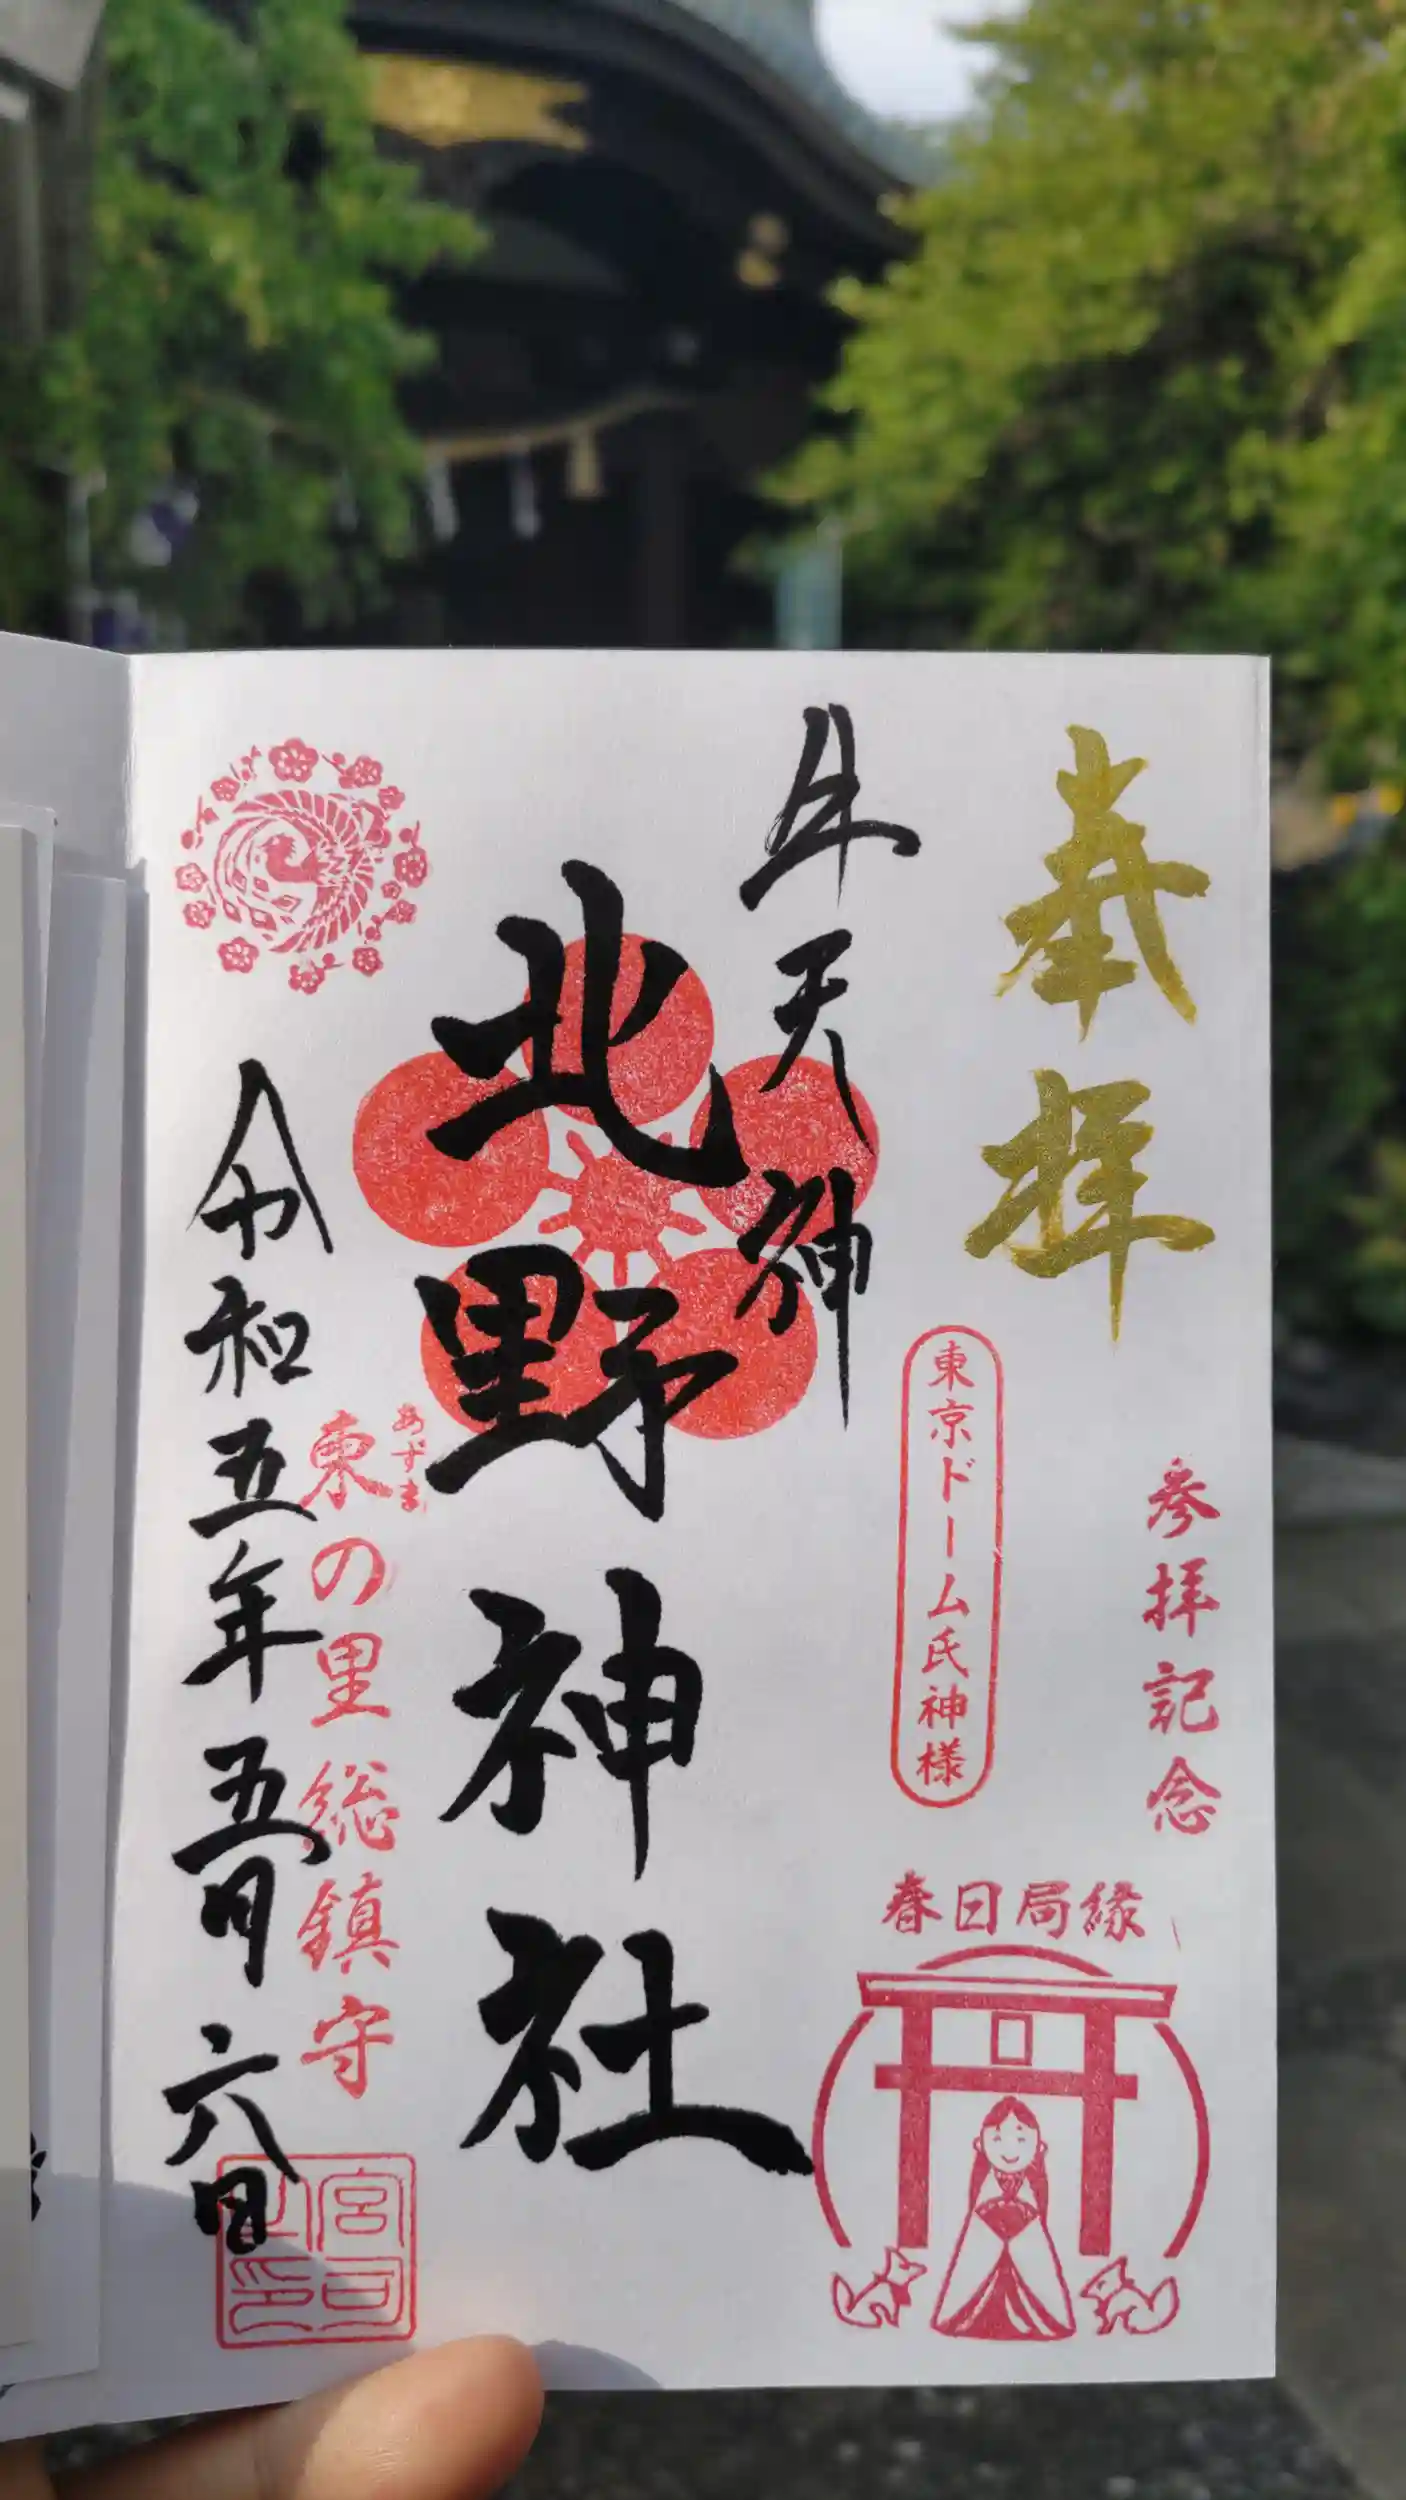 奉拝
参拝記念
春日局縁
東京ドーム氏神様
牛天神
北野神社
あずま
東の里総鎮守
令和五年五月六日
宮司之印